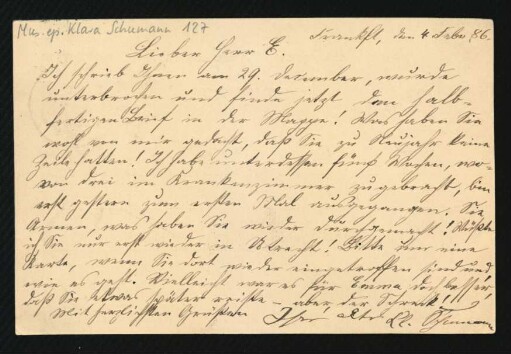 Mus. ep. Klara Schumann 127
Frankft, den 4 Febr. 86.
Lieber Herr E.
Ich schrieb Ihnen am 29. December, wurde
unterbrochen und finde jetzt den halb-
fertigen Brief in der Mappe! Was haben Sie
wohl von mir gedacht, daß Sie zu Neujahr keine
Zeile hatten! Ich habe unterdessen fünf Wochen, wo-
von drei im Krankenzimmer zugebracht, bin
erst gestern zum ersten Mal ausgegangen. Sie
Armen, was haben Sie wieder durchgemacht! Wüßte
ich Sie nur erst wieder in Utrecht! Bitte um eine
Karte, wenn Sie dort wieder eingetroffen sind und
wie es geht. Vielleicht war es für Emma doch besser,
daß Sie etwas später reisten – aber der Schreck!
Mit herzlichsten Grüßen Ihre alte Cl. Schumann